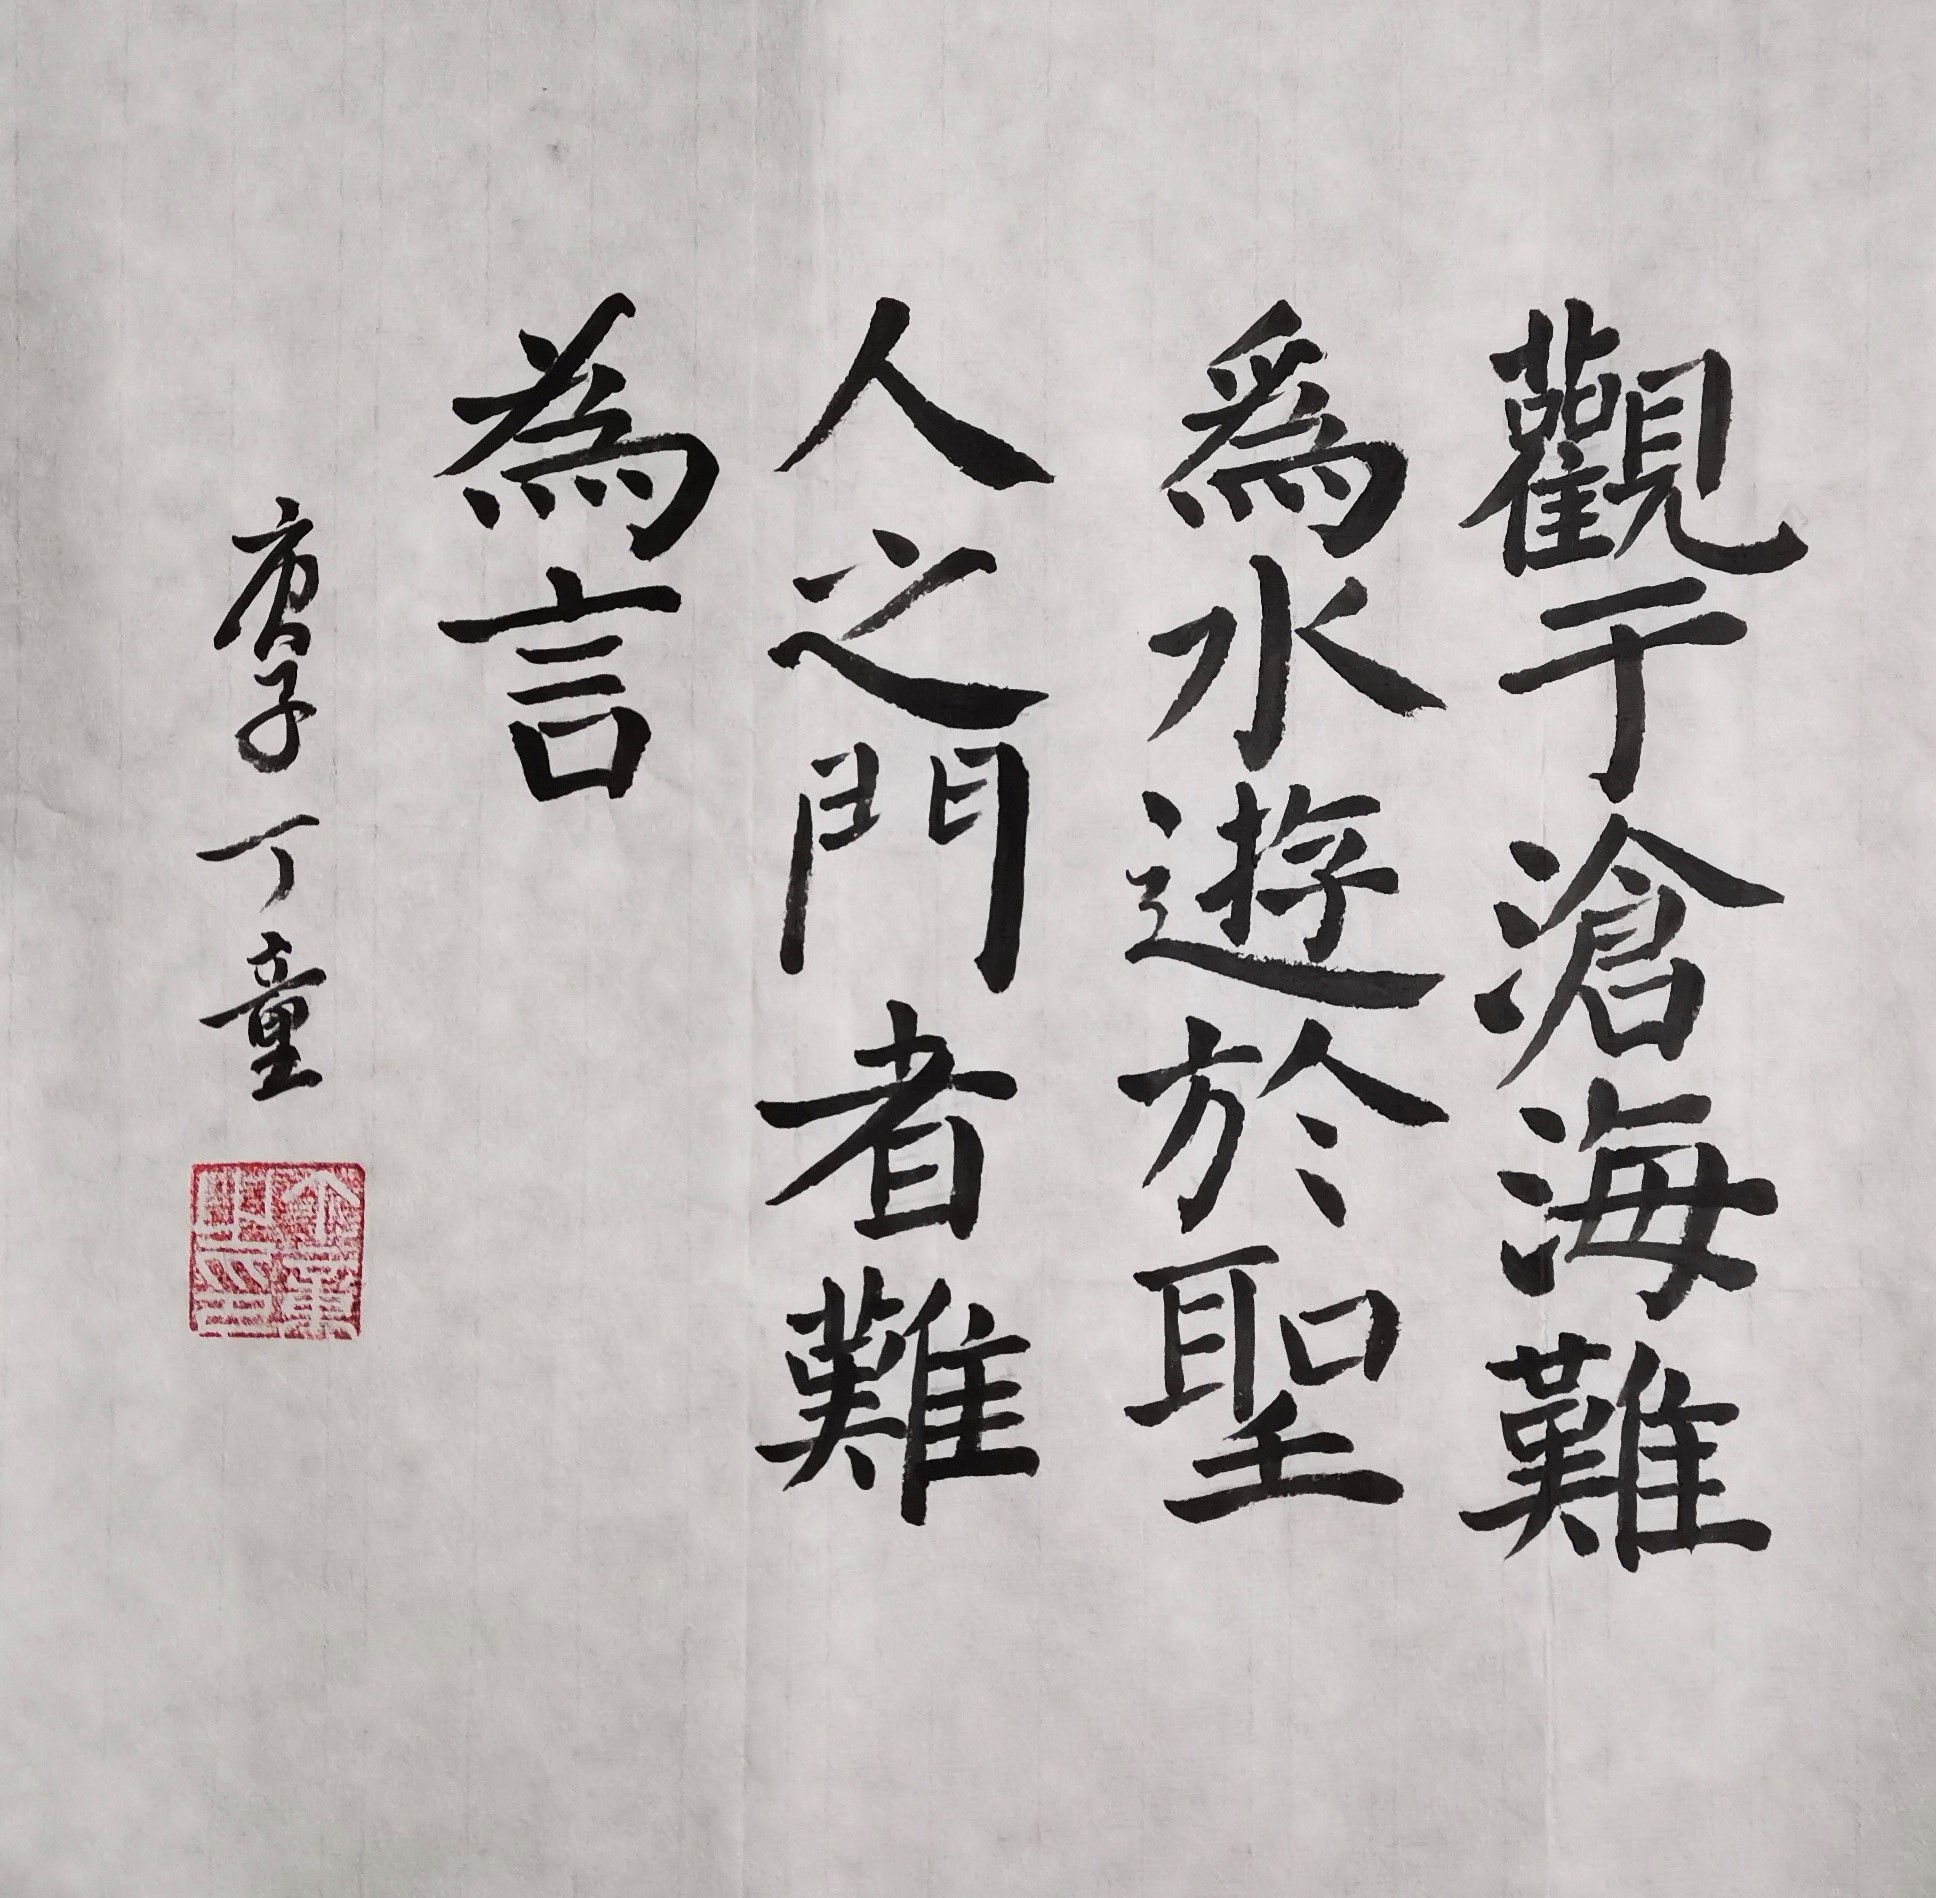 觀于滄海難
爲水遊於聖
人之門者難
為言
庚子丁童